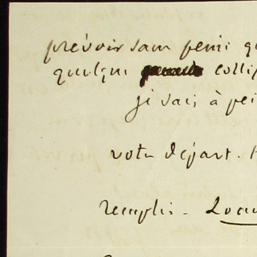 prévoir sans peine qu
quelque colli
je sais à pei
votre départ.
remplis -